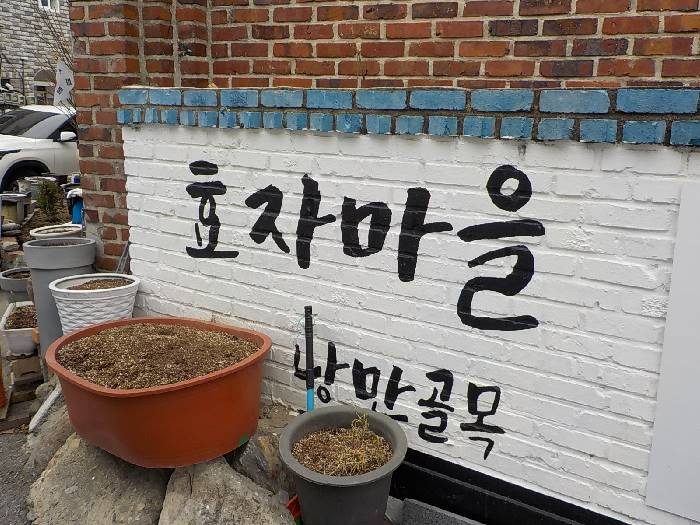 효자마을
낭만골목